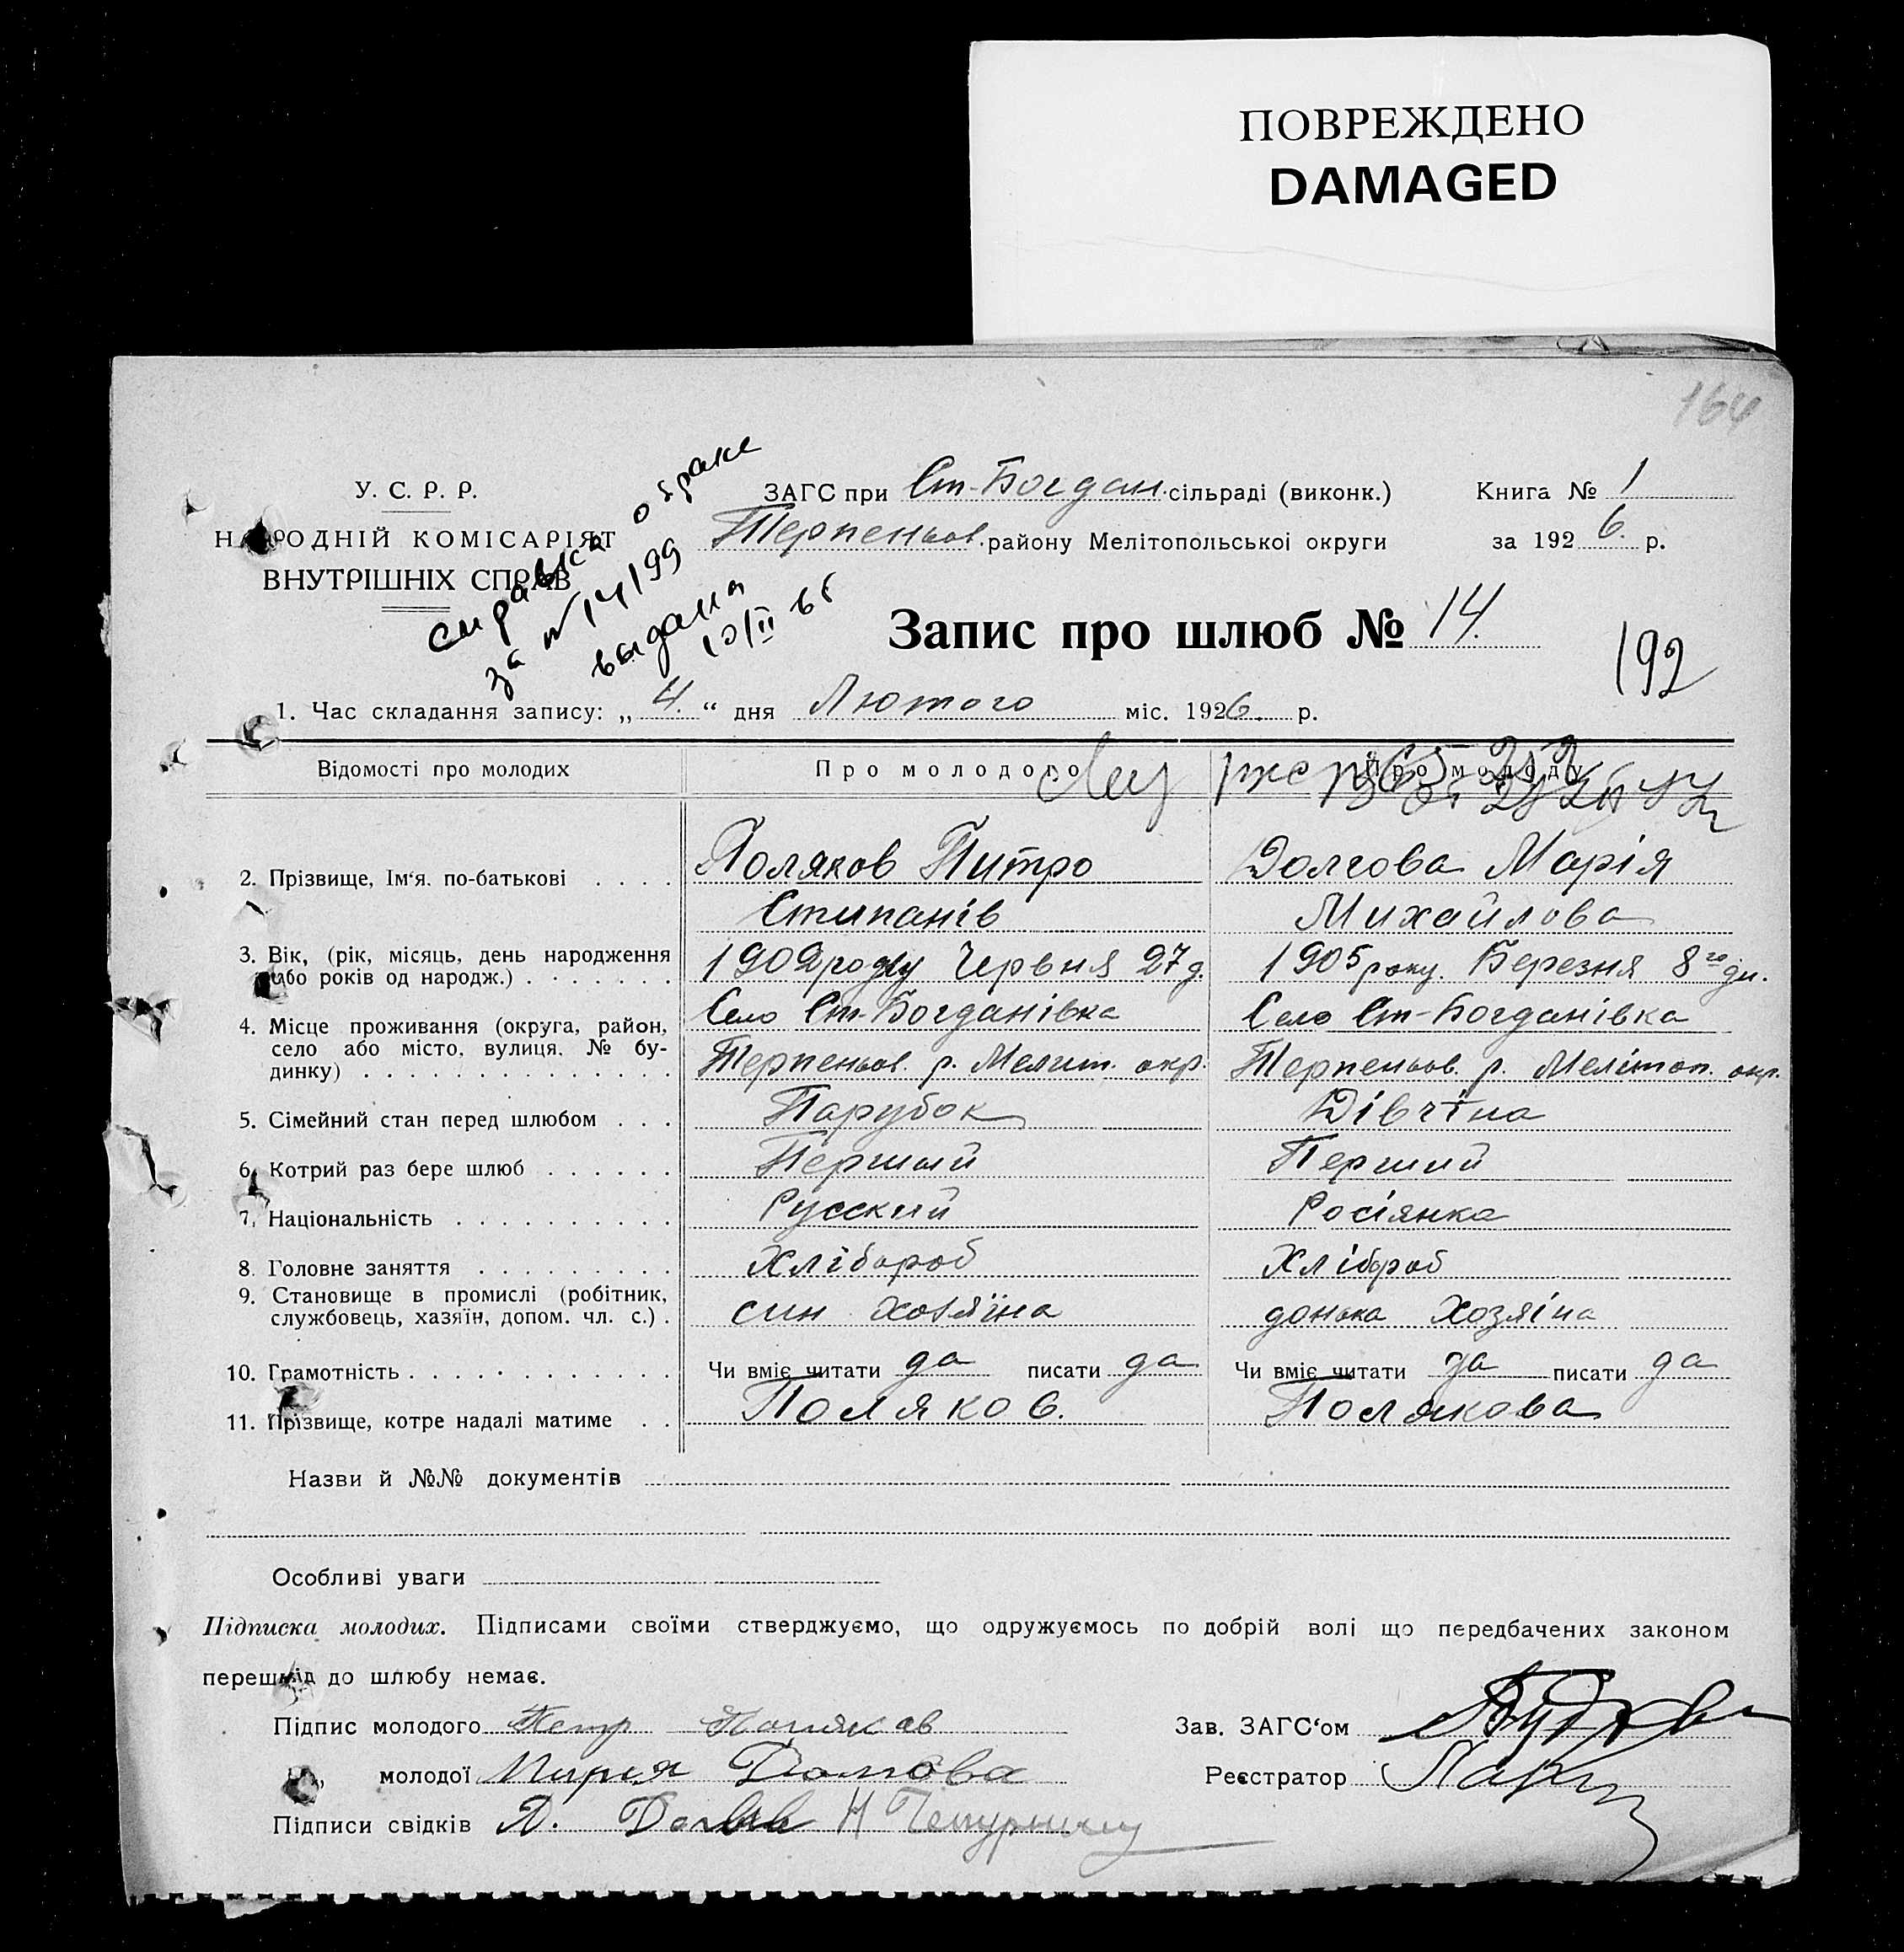 ПОВРЕЖДЕНО
DAMAGED
164
У. С. Р. Р.
НАРОДНІЙ КОМІСАРІЯТ
ВНУТРІШНІХ СПРАВ
справка о браке
за № 14/99
выдана
10/II 66
ЗАГС при Ст-Богдан. сільраді (виконк.) Книга № 1
Терпеньов. району Мелітопольської округи за 1926. р.
Запис про шлюб № 14.
192
1. Час складання запису: „4.“ дня Лютого міс. 1926. р.
Відомості про молодих Про молодого Про молоду
2. Прізвище, Ім‘я. по-батькові . . . . Поляков Питро Долгова Марія
Стипанів Михайлова
3. Вік, (рік, місяць, день народження
або років од народж.) . . . . . . . 1902 року Червня 27 д. 1905 року. Березня 8го дн.
4. Місце проживання (округа, район,
село або місто, вулиця, № бу-
динку) . . . . . . . . . . . . . . Село Ст-Богданівка Село Ст-Богданівка
Терпеньов. р. Мелит. окр. Терпеньов. р. Мелітоп. окр.
5. Сімейний стан перед шлюбом . . . Парубок Дівчіна
6. Котрий раз бере шлюб . . . . . . Перший Перший
7. Національність . . . . . . . . . . Русский Росіянка
8. Головне заняття . . . . . . . . . Хлібороб Хлібороб
9. Становище в промислі (робітник,
службовець, хазяїн, допом. чл. с.) . син хозяїна донька хозяіна
10. Грамотність . . . . . . . . . . . . Чи вміє читати да писати да Чи вміє читати да писати да
11. Прізвище, котре надалі матиме . . Поляков. Полякова
Назви й №№ документів
Особливі уваги
Підписка молодих. Підписами своїми стверджуємо, що одружуємось по добрій волі що передбачених законом
перешкід до шлюбу немає.
Підпис молодого Петр Поляков Зав. ЗАГС‘ом
„ молодої Мария Долгова Реєстратор
Підписи свідків Д.